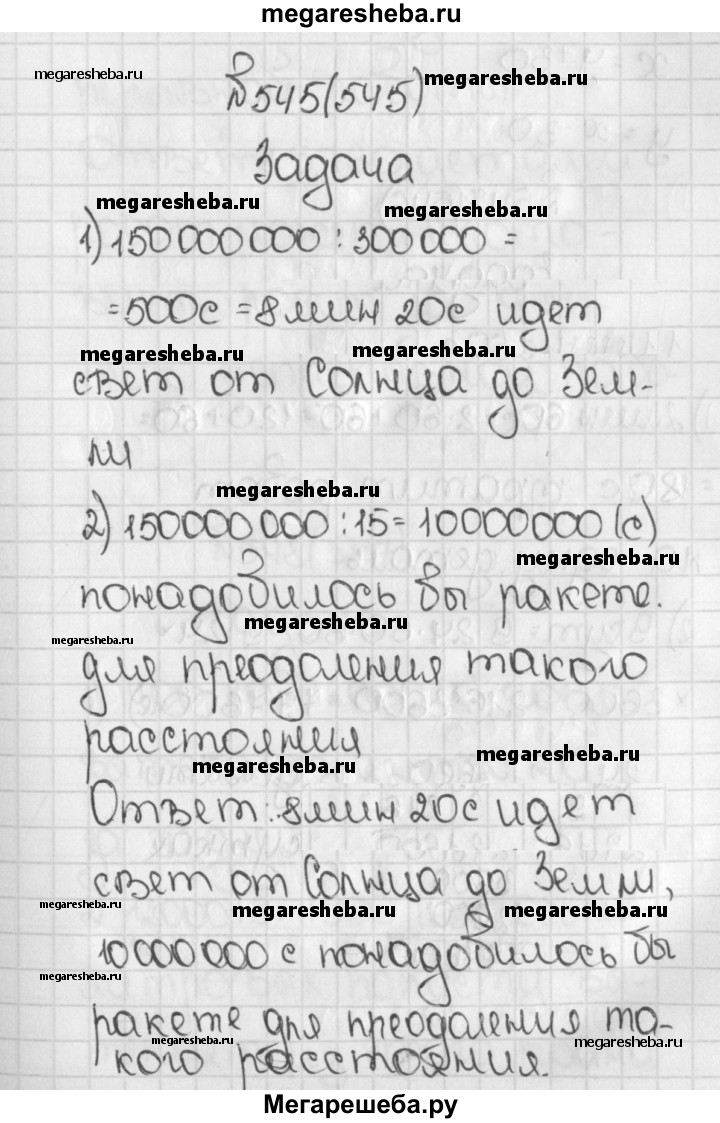 megaresheba.ru
megaresheba.ru
№545(545) megaresheba.ru
Задача
megaresheba.ru megaresheba.ru
1) 150 000 000 : 300 000 =
= 500с = 8 мин 20с идет
megaresheba.ru megaresheba.ru
свет от Солнца до Зем-
ли
megaresheba.ru
2) 150 000 000 : 15 = 10 000 000 (с)
megaresheba.ru
понадобилось бы ракете.
megaresheba.ru megaresheba.ru
для преодаления такого
расстояния
megaresheba.ru megaresheba.ru
Ответ: 8 мин 20с идет
свет от Солнца до Земли,
megaresheba.ru megaresheba.ru megaresheba.ru
10 000 000 с понадобилось бы
megaresheba.ru
ракете для преодаления та-
megaresheba.ru megaresheba.ru
кого расстояния.
Мегарешеба.ру